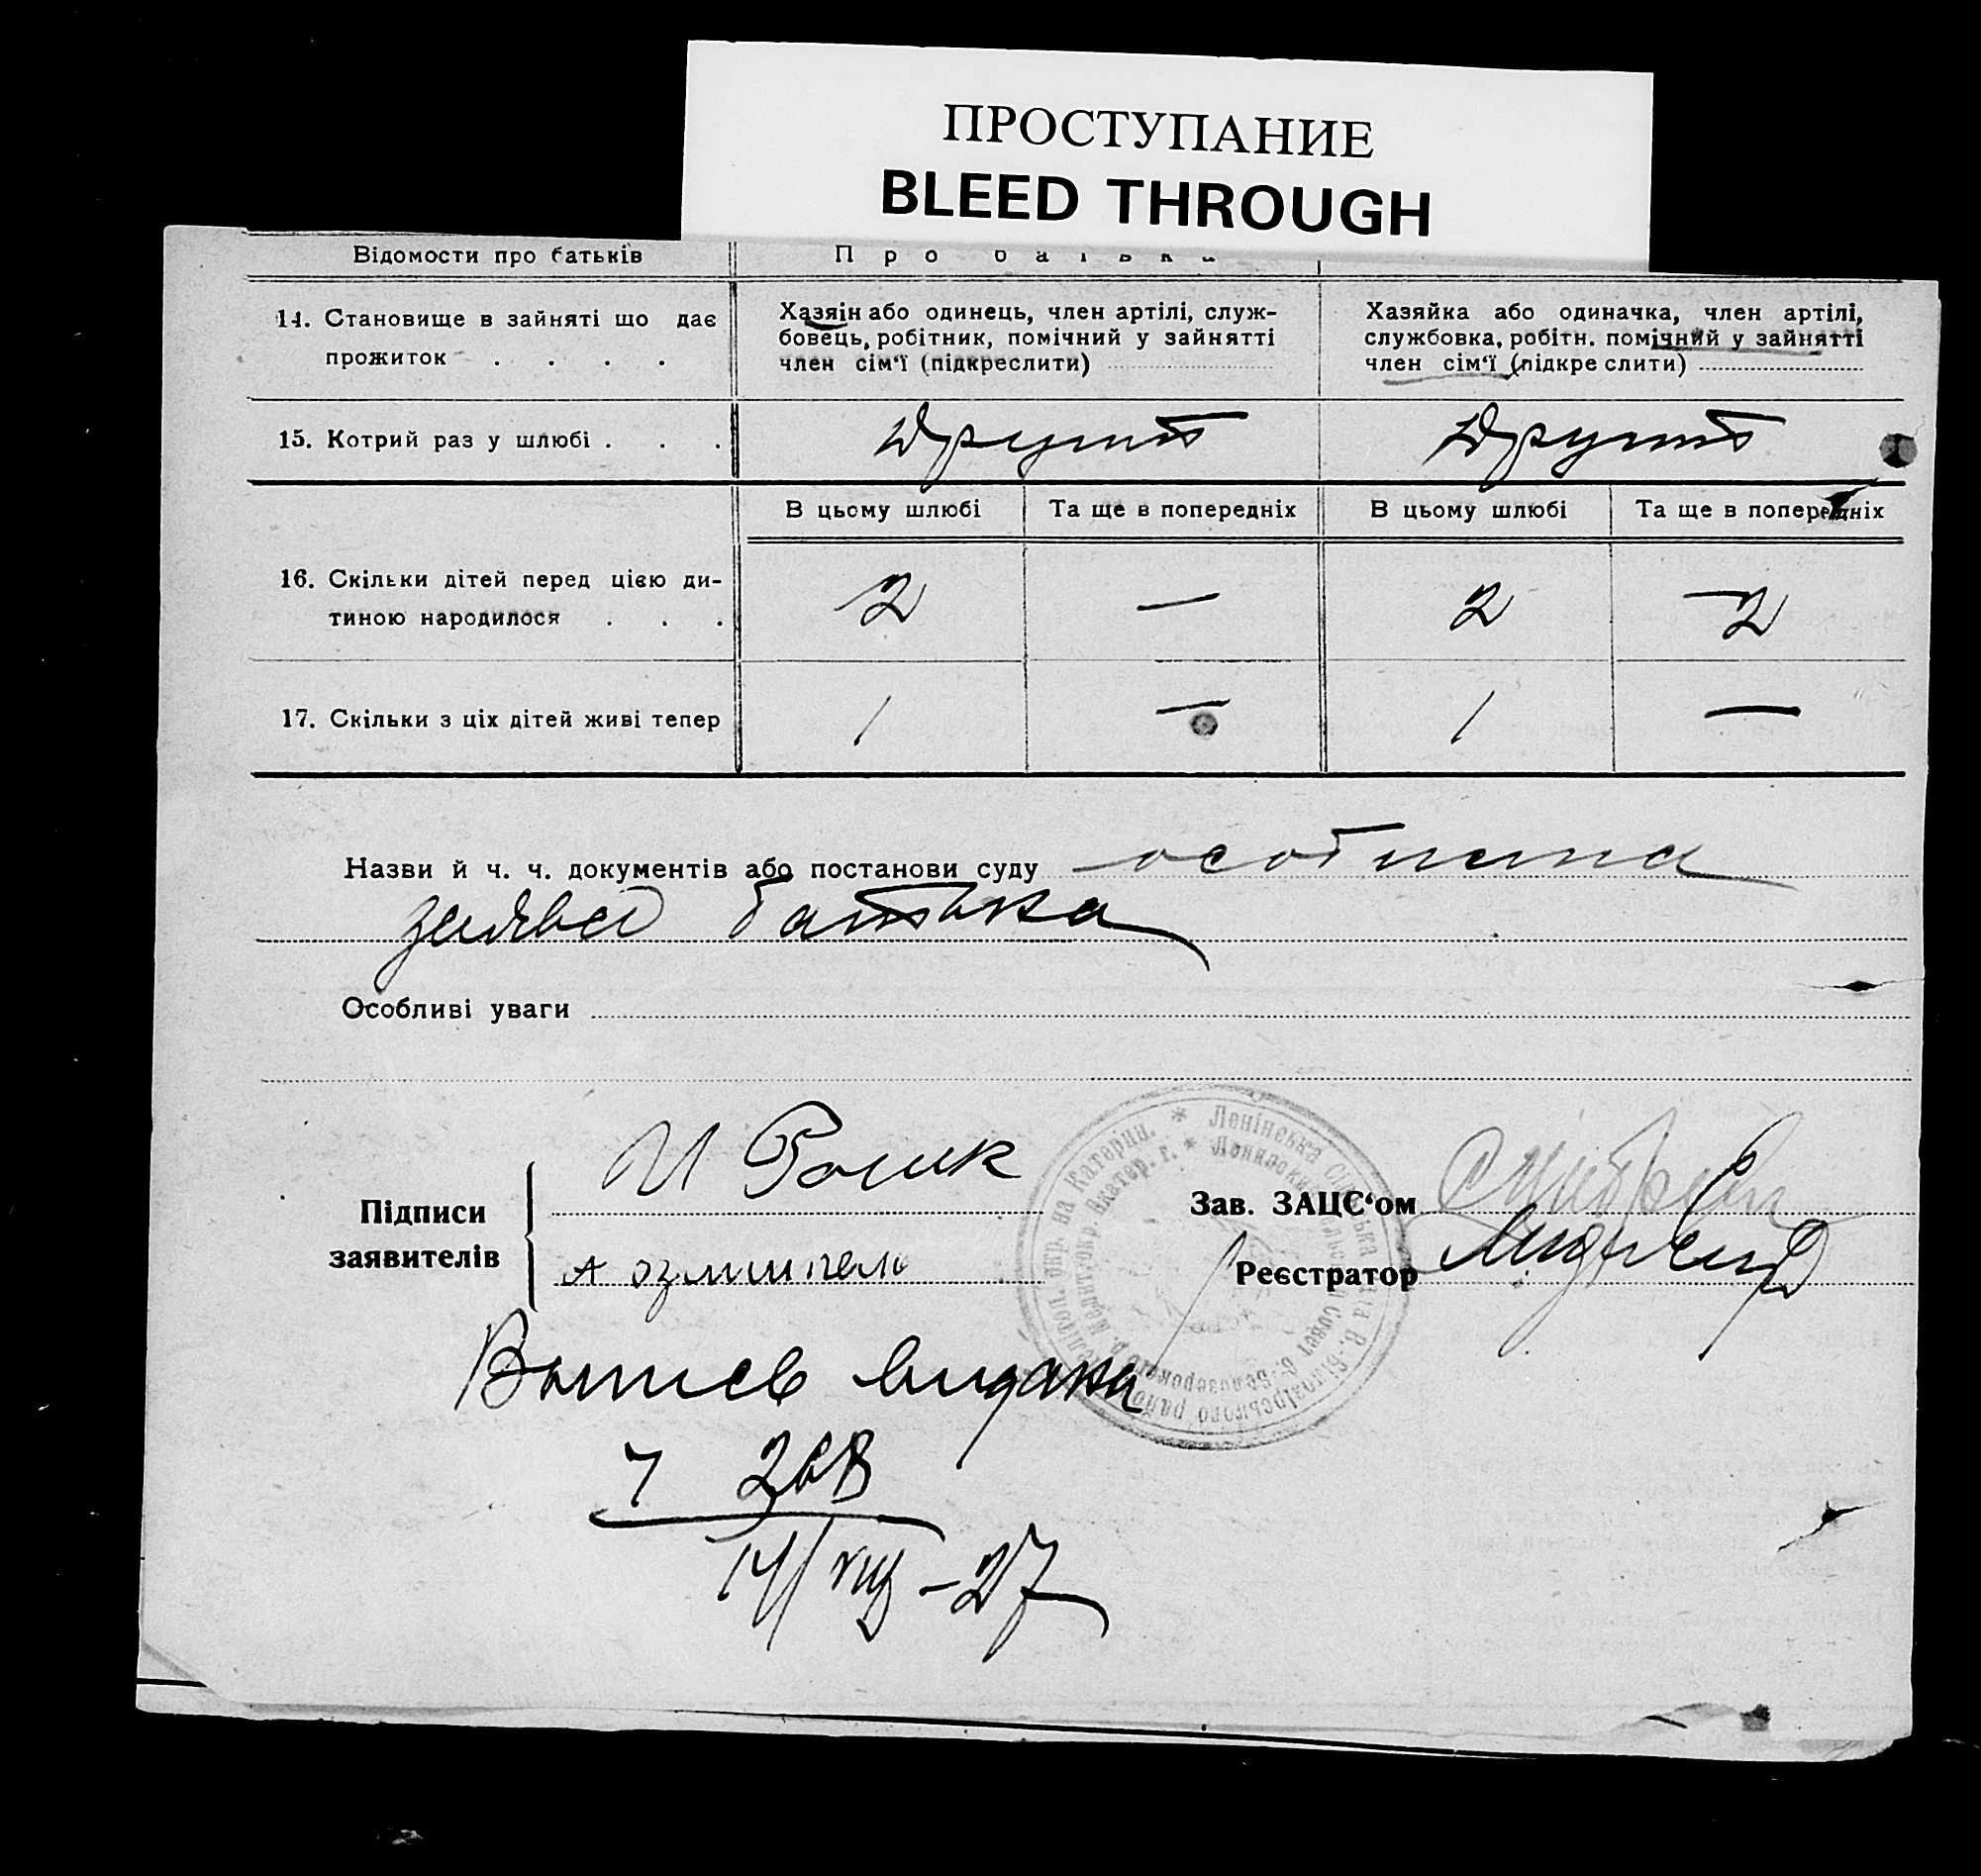 ПРОСТУПАНИЕ
BLEED THROUGH
Відомости про батьків
Про батька
14. Становище в зайняті що дає прожиток . . . .
Хазяін або одинець, член артілі, служ-
бовець, робітник, помічний у зайнятті
член сім‘ї (підкреслити)
Хазяйка або одиначка, член артілі,
службовка, робітн. помічний у зайнятті
член сім‘ї (підкре слити)
15. Котрий раз у шлюбі . . .
Другий
Другий
В цьому шлюбі
Та ще в попередніх
В цьому шлюбі
Та ще в попередніх
16. Скільки дітей перед цією ди-
тиною народилося . . .
2 — 2 —2
17. Скільки з ціх дітей живі тепер
1 — 1 —
Назви й ч. ч. документів або постанови суду особиста
заява батька
Особливі уваги
Підписи
заявителів
И
Зав. ЗАЦС‘ом
Реєстратор
видана
Ч 268
14/VIII – 27